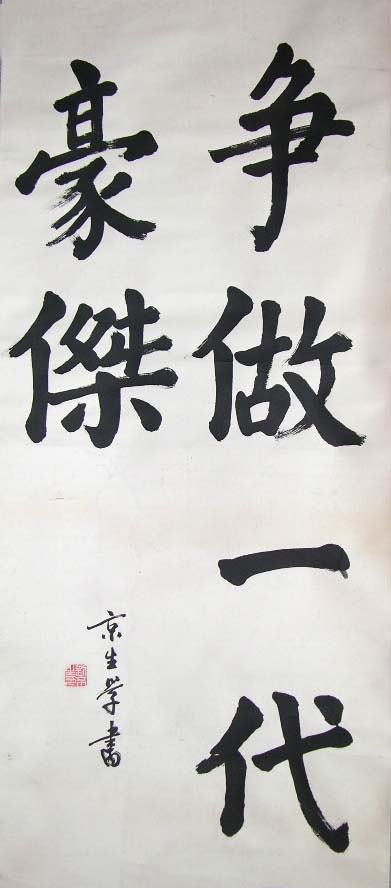 争做一代
豪傑
京生学書